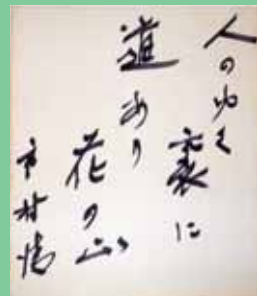 人のゆく
裏に
道あり
花の山
市村清